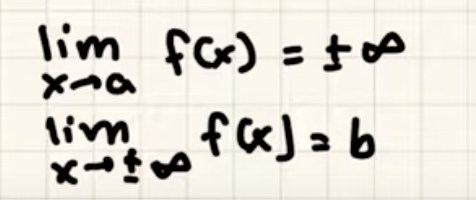 lim x→a f(x) = ±∞
lim x→±∞ f(x) = b